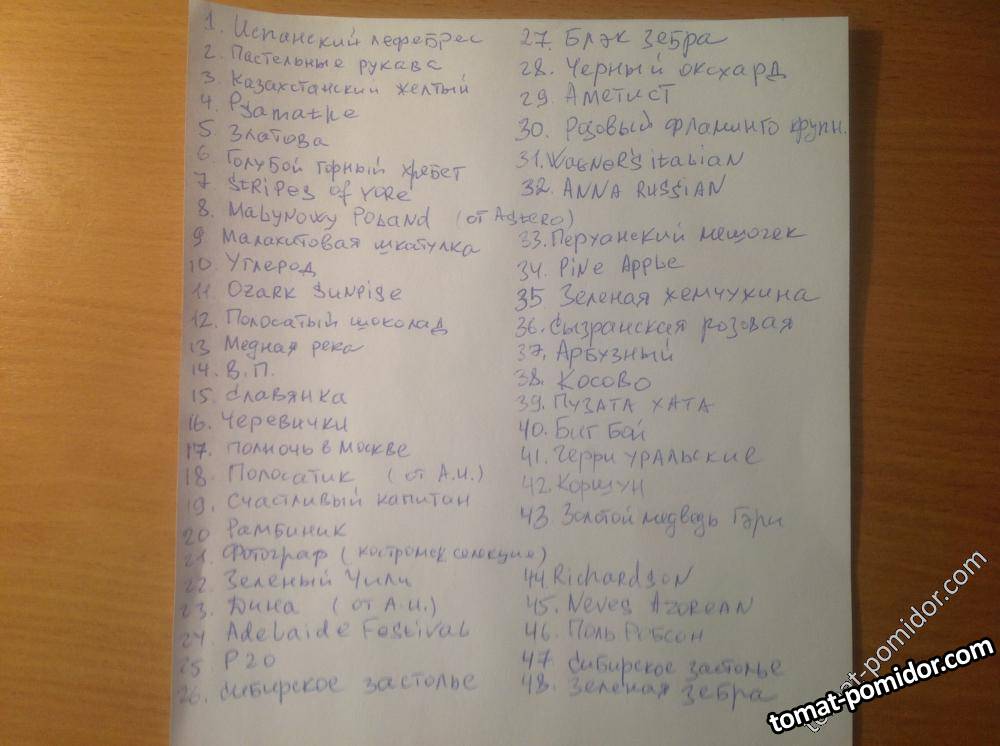 1. Испанский лефебрес
2. Пастельные рукава
3. Казахстанский желтый
4.
5 Златова
6 Голубой горный хребет
7 Stripes of YORE
8. Malynowy Poland (от Astero)
9. Малахитовая шкатулка
10 Углерод
11 Ozark Sunrise
12. Полосатый шоколад
13 Медная река
14. В.П.
15 Славянка
16. Черевички
17. Полночь в Москве
18 Полосатик (от А.И.)
19. Счастливый капитан
20 Рамбиник
21. Фотограф (костромск селекция)
22. Зеленый Чили
23. Дина (от А.И.)
24 Adelaide Festival
25 P20
26. Сибирское застолье
27. Блэк зебра
28. Черный оксхард
29. Аметист
30. Розовый фламинго крупн.
31. WAGNER'S italian
32. ANNA RUSSIAN
33. Перуанский мешочек
34. PiNe Apple
35 Зеленая жемчужина
36. Сызранская розовая
37. Арбузный
38. Косово
39. Пузата хата
40. Биг бой
41. Черри уральские
42. Коршун
43 Золотой медведь Гэри
44 Richardson
45. Neves Azorean
46. Поль Робсон
47 Сибирское застолье
48. Зеленая зебра
tomat-pomidor.com
tomat-pomidor.com